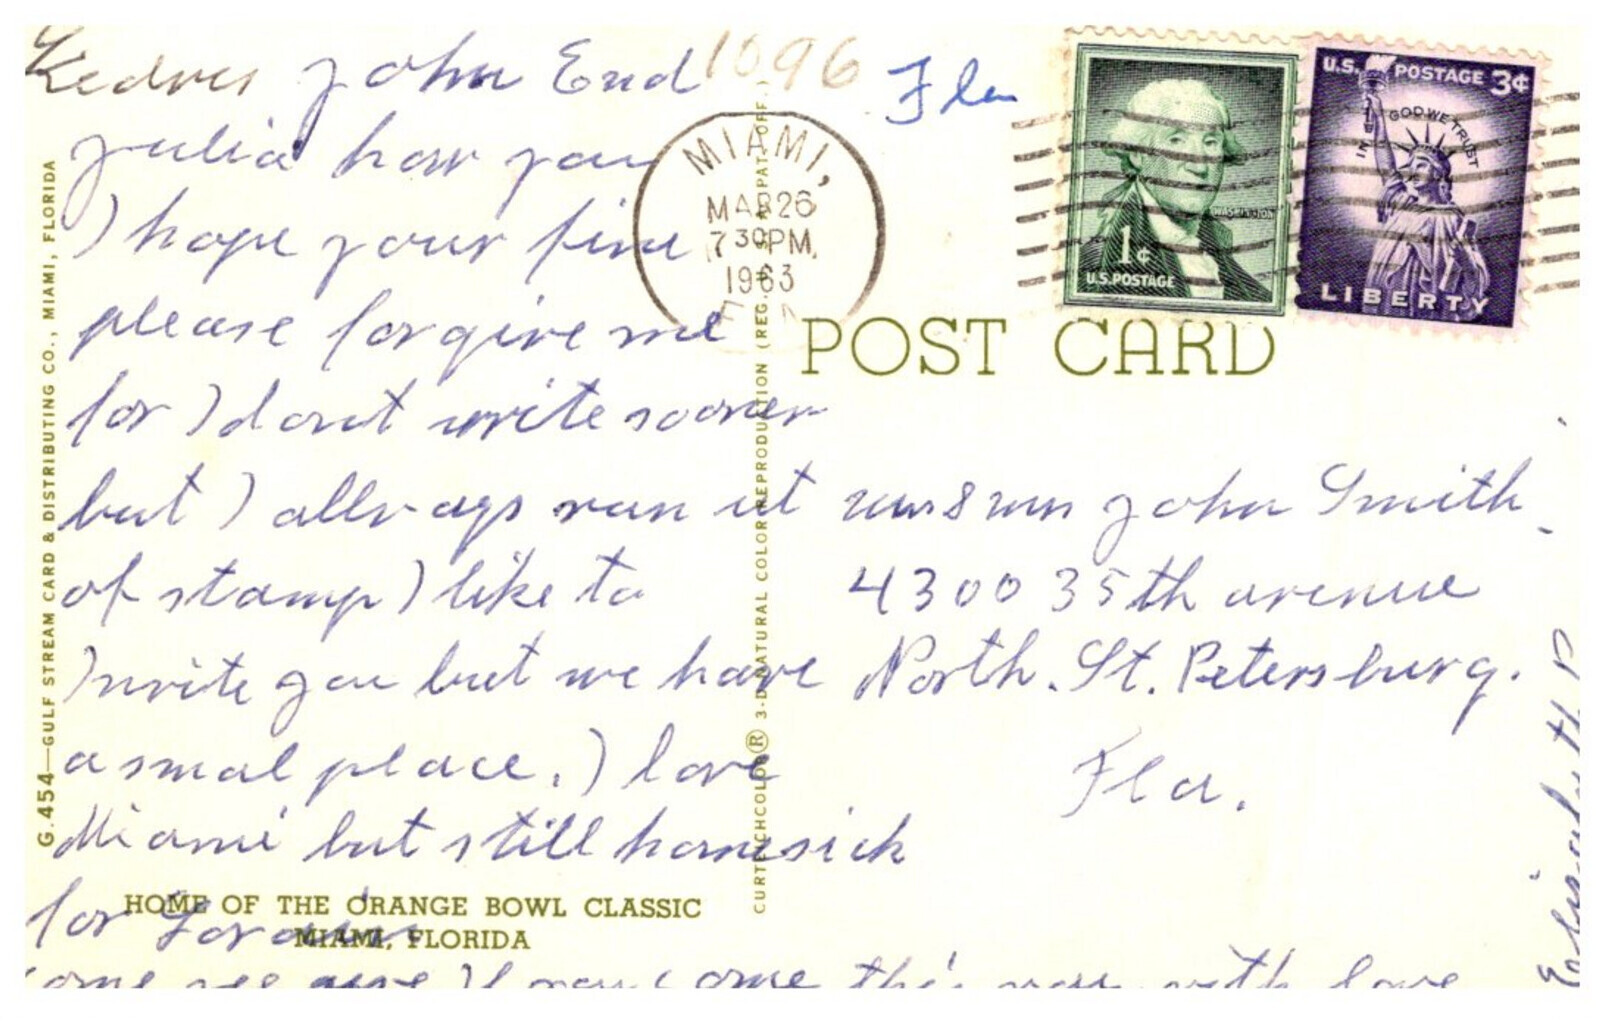 Kedves John End
Julia how you
I hope your fine
please forgive me
for I dont write sooner
but I allways run ut
of stamp I like to
Invite you but we have
a smal place. I love
Miami but still homesick
for Lorain
come see give if you come this way with love
Elisabeth P
1096
Fla
MIAMI,
MAR 26
7 30 PM
1963
1¢
U.S. POSTAGE
WASHINGTON
U.S. POSTAGE 3¢
IN GOD WE TRUST
LIBERTY
POST CARD
John Smith
4300 35th avenue
North. St. Petersburg.
Fla.
G.454—GULF STREAM CARD & DISTRIBUTING CO., MIAMI, FLORIDA
CURTEICHCOLOR® 3-D NATURAL COLOR REPRODUCTION (REG. U.S.A. PAT. OFF.)
HOME OF THE ORANGE BOWL CLASSIC
MIAMI, FLORIDA